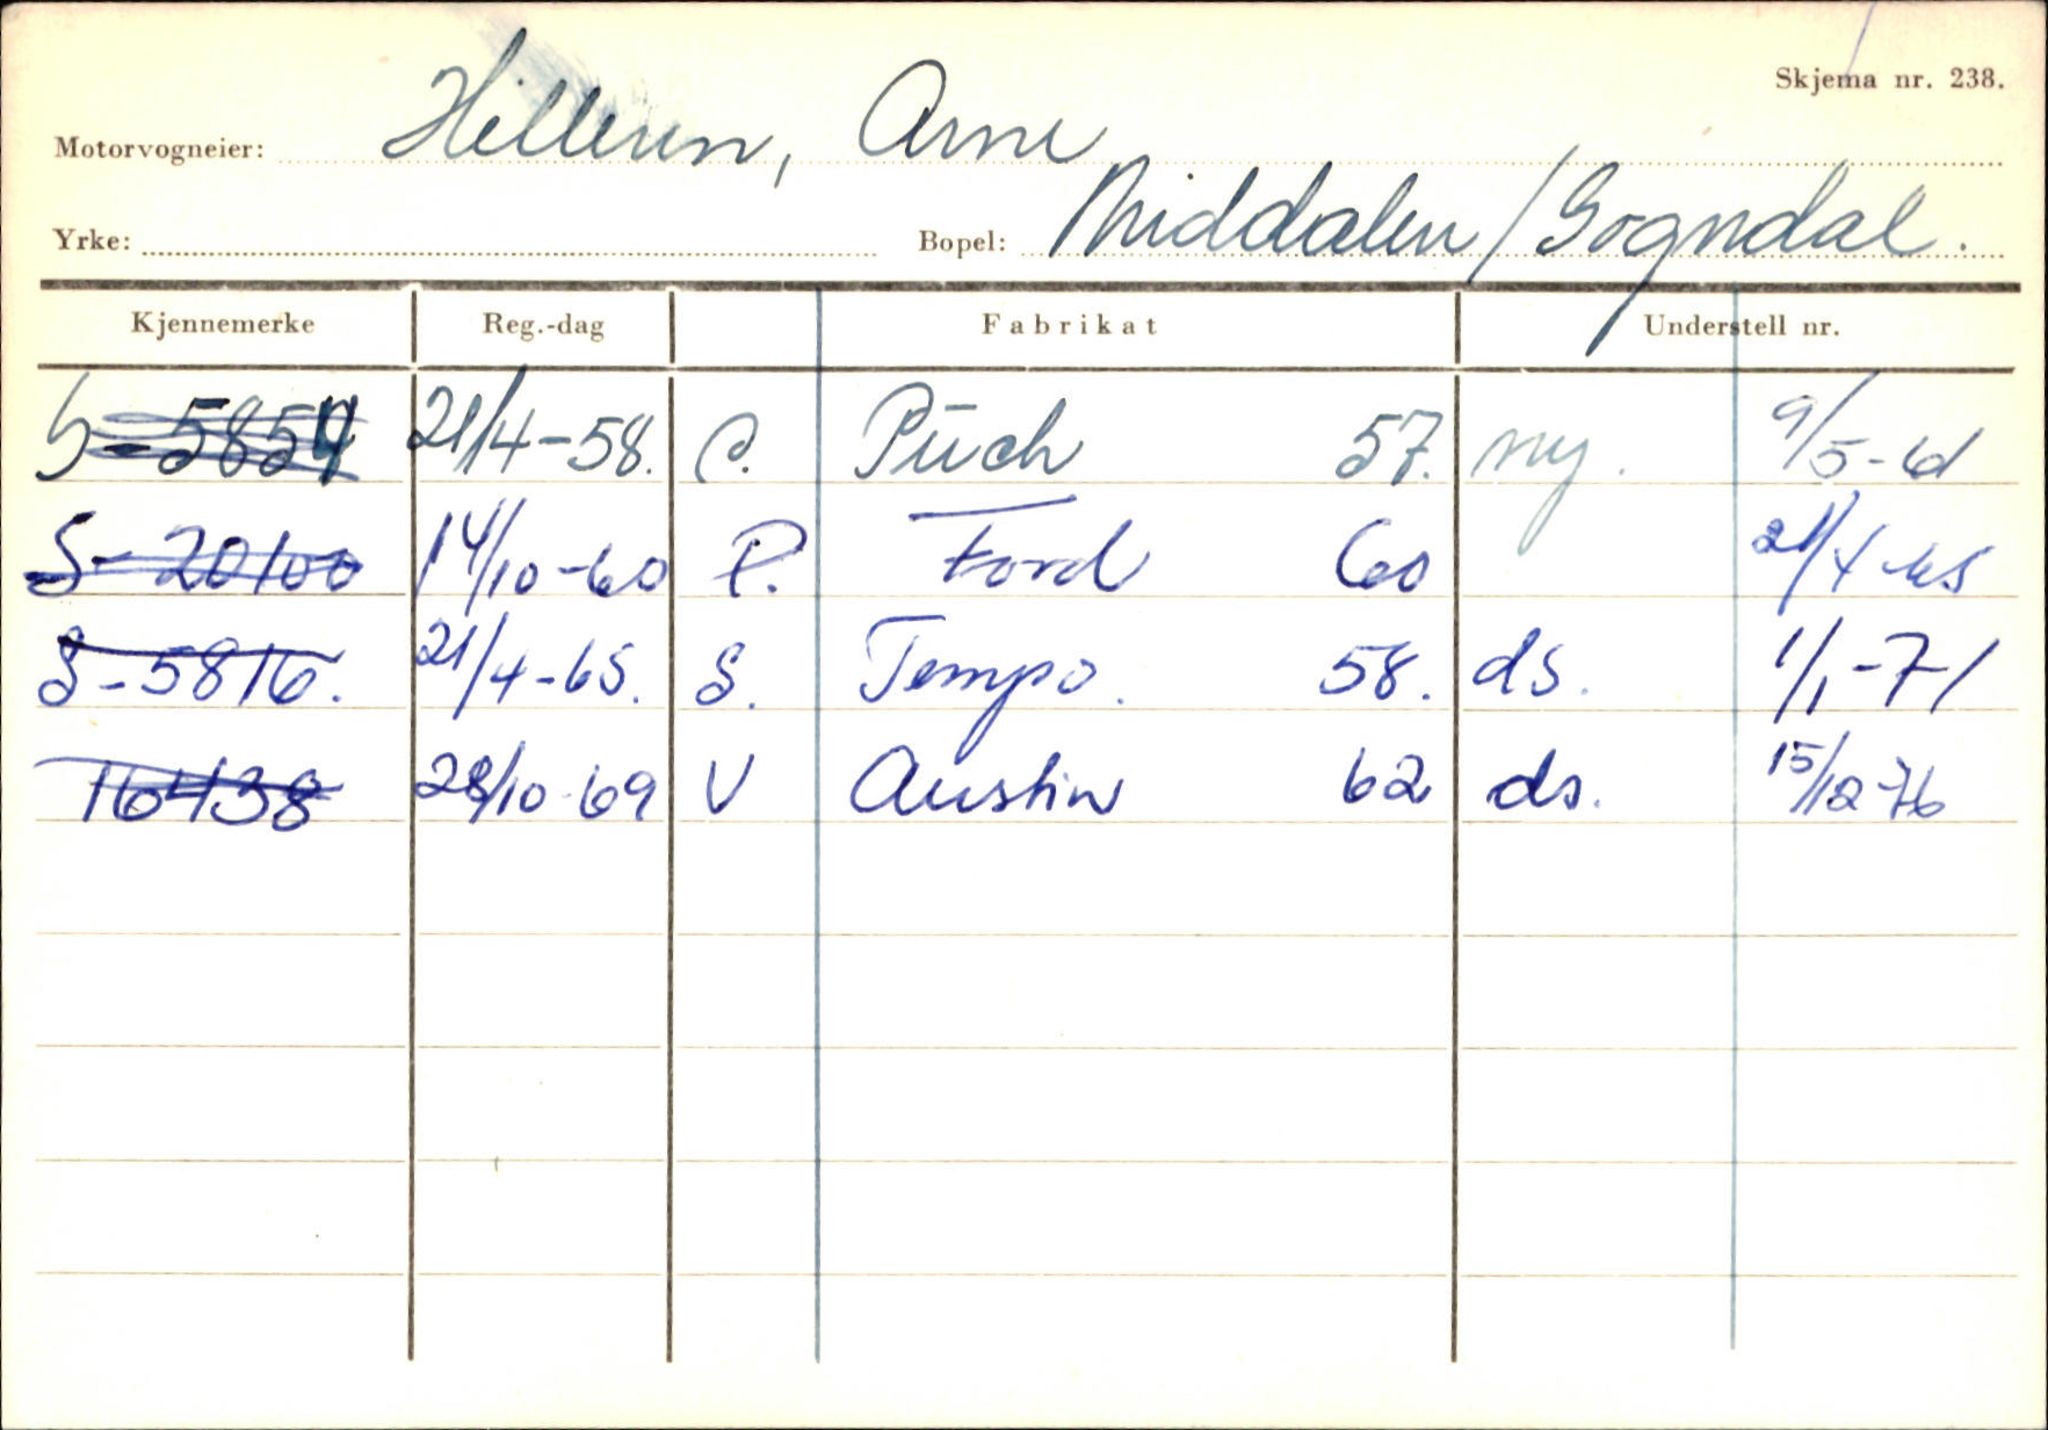 Skjema nr. 238.
Motorvogneier: Hilleren, Arne
Yrke: Bopel: Middalen/Sogndal.
Kjennemerke Reg.-dag Fabrikat Understell nr.
S-5854 21/4-58. C. Püch 57. ny. 9/5-61
S-20100 14/10-60 P. Ford 60 21/4-65
S-5816. 21/4-65. S. Tempo. 58. ds. 1/1-71
16438 28/10-69 V Austin 62 ds. 15/12-76